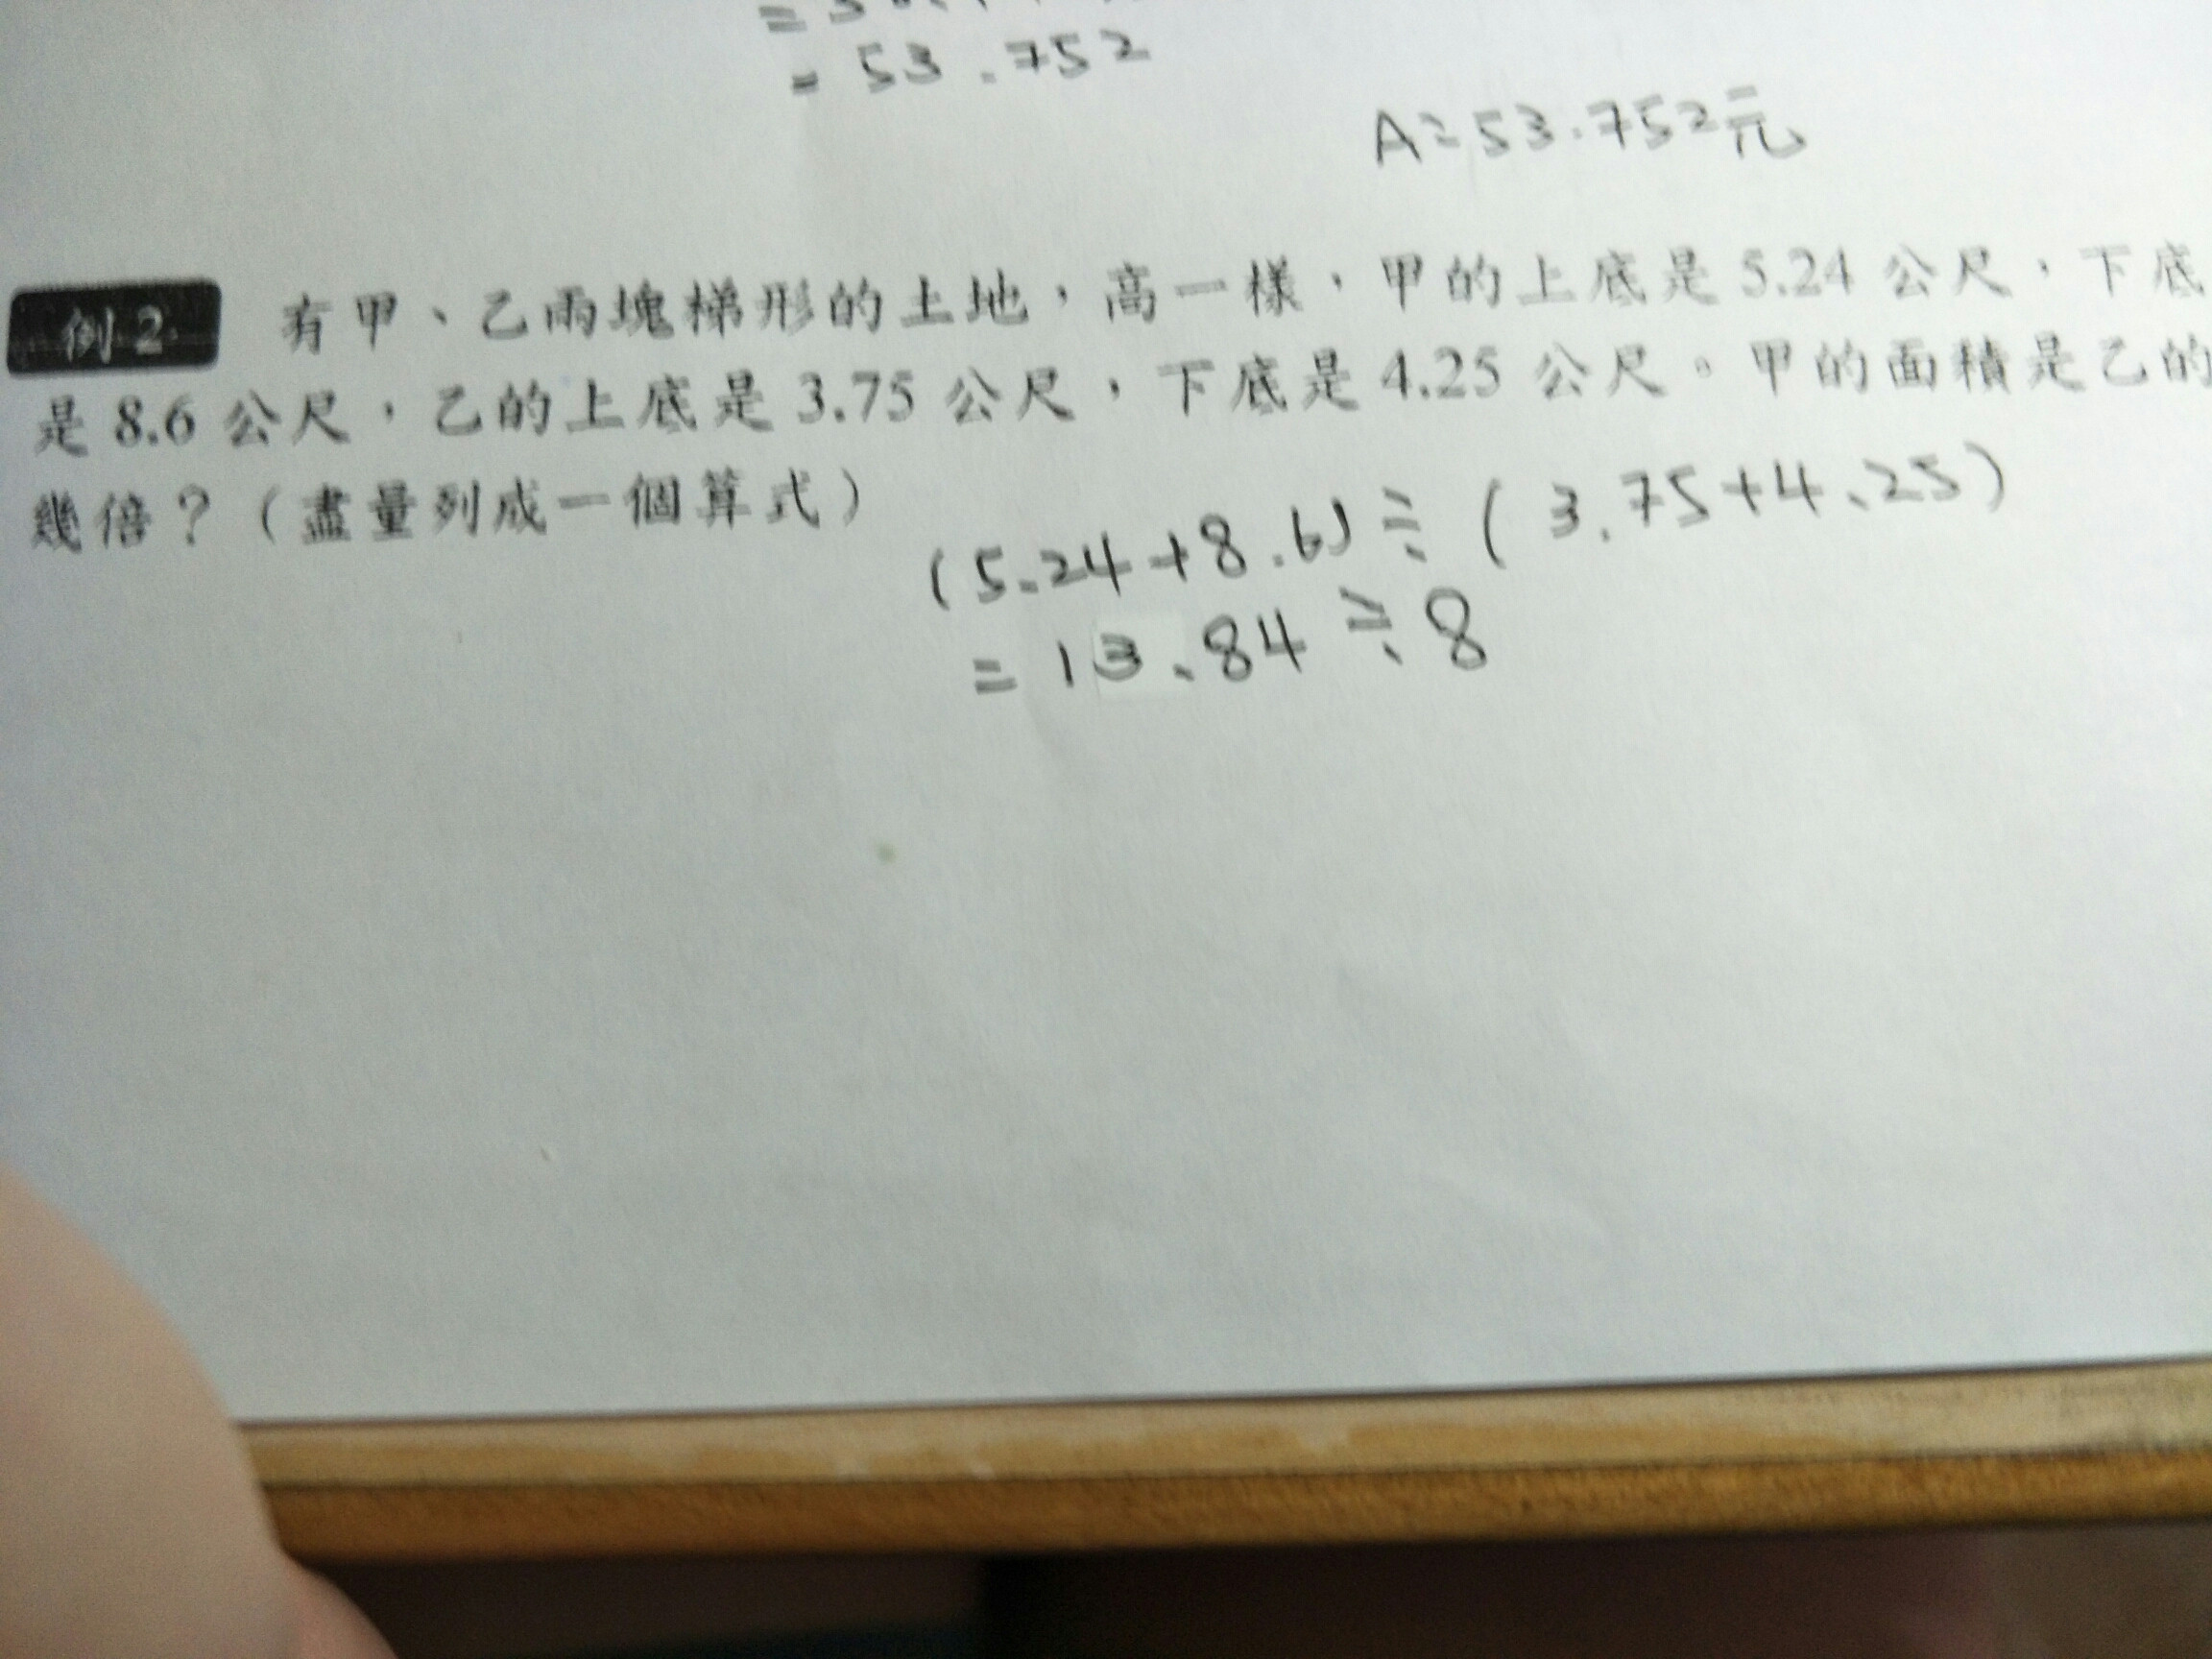 = 53.752
A=53.752元
例2 有甲、乙兩塊梯形的土地，高一樣，甲的上底是 5.24 公尺，下底
是 8.6 公尺，乙的上底是 3.75 公尺，下底是 4.25 公尺。甲的面積是乙的
幾倍？（盡量列成一個算式）
(5.24+8.6)÷(3.75+4.25)
= 13.84÷8